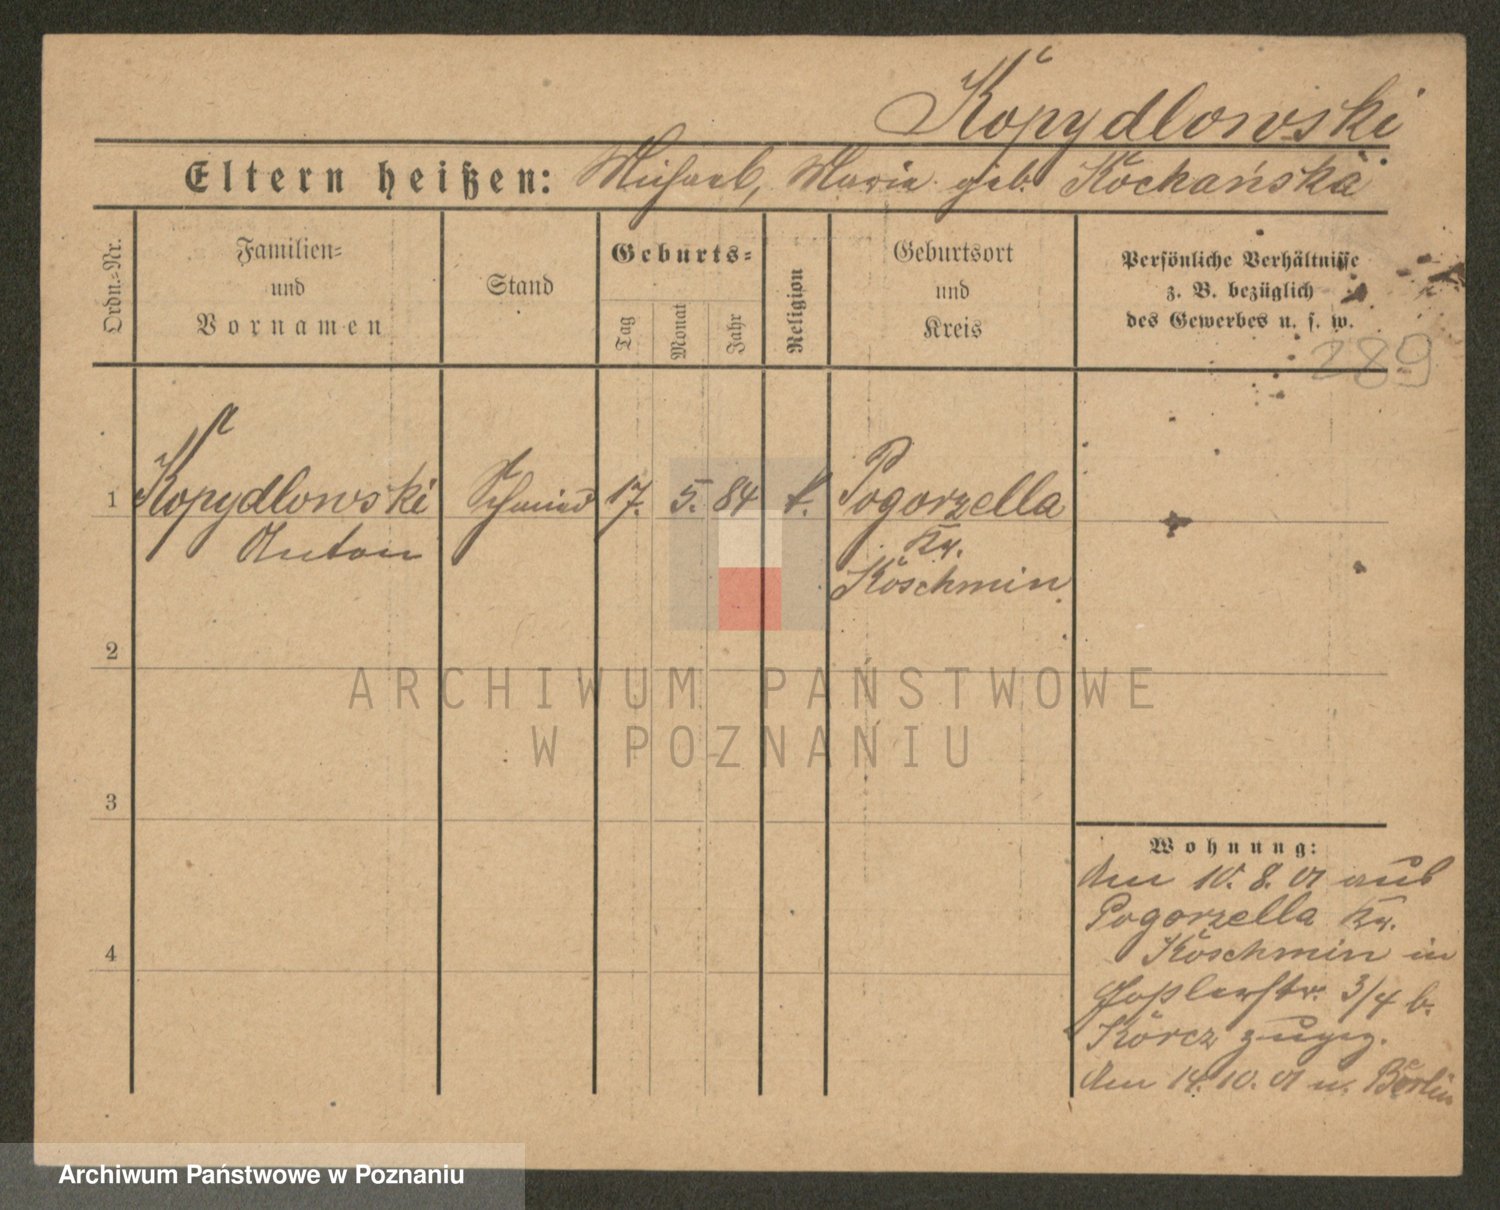 Kopydlowski
Eltern heißen: Michael, Maria geb. Kochańska
Ordn.-Nr.
Familien-
und
Vornamen
Stand
Geburts-
Tag
Monat
Jahr
Religion
Geburtsort
und
Kreis
Persönliche Verhältnisse
z. B. bezüglich
des Gewerbes u. s. w.
289
1 Kopydlowski Schmied 17. 5. 84 k. Pogorzella
Anton Kr.
Koschmin
2
ARCHIWUM PAŃSTWOWE
W POZNANIU
3
Wohnung:
Am 10. 8. 01 aus
Pogorzella Kr.
4 Koschmin in
3/4 b.
Korcz zugez.
Am 14. 10. 01 n. Berlin
Archiwum Państwowe w Poznaniu